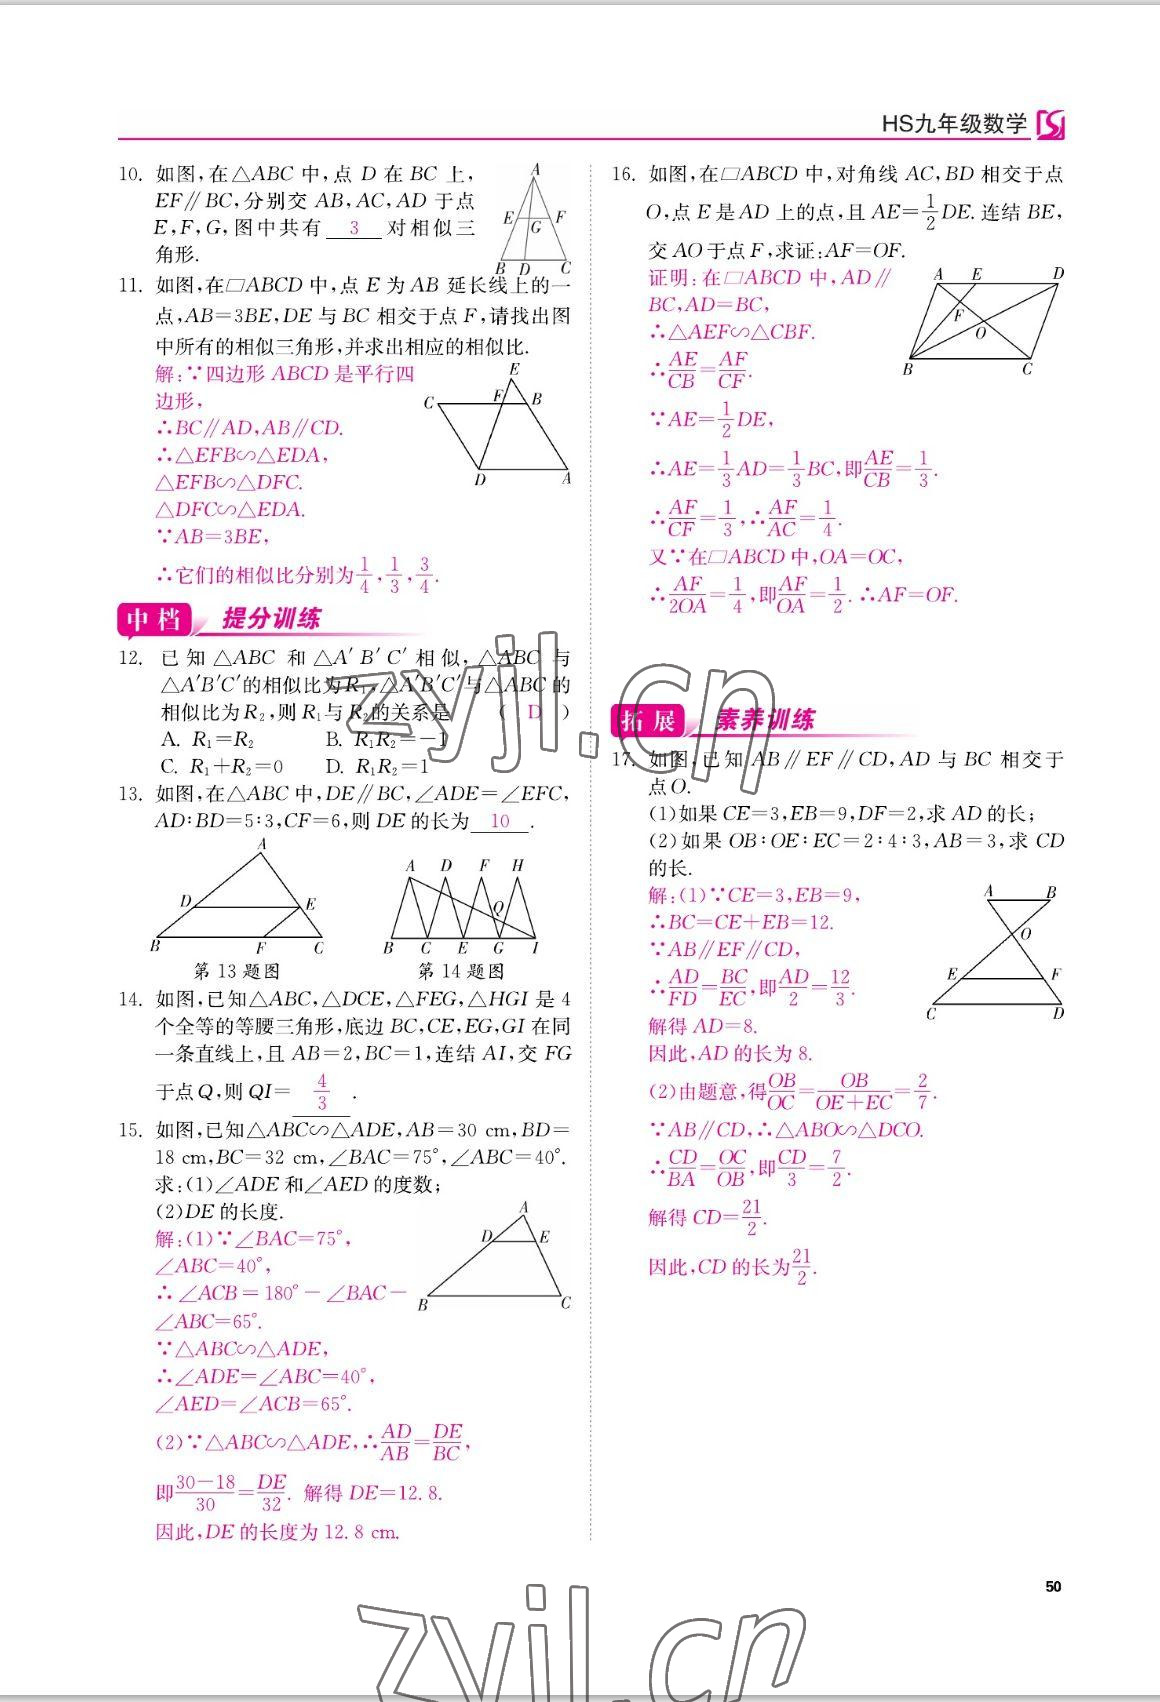 HS九年级数学
10. 如图,在△ABC 中,点 D 在 BC 上,
EF∥BC,分别交 AB,AC,AD 于点
E,F,G,图中共有 3 对相似三
角形.
A
E
G
F
B
D
C
11. 如图,在▱ABCD 中,点 E 为 AB 延长线上的一
点,AB=3BE,DE 与 BC 相交于点 F,请找出图
中所有的相似三角形,并求出相应的相似比.
解:∵四边形 ABCD 是平行四
边形,
∴BC∥AD,AB∥CD.
∴△EFB∽△EDA,
△EFB∽△DFC.
△DFC∽△EDA.
∵AB=3BE,
∴它们的相似比分别为1/4,1/3,3/4.
E
C
F
B
D
A
中档 提分训练
12. 已知 △ABC 和 △A′B′C′ 相似,△ABC 与
△A′B′C′的相似比为R₁,△A′B′C′与△ABC 的
相似比为R₂,则 R₁与 R₂的关系是 ( D )
A. R₁=R₂ B. R₁R₂=-1
C. R₁+R₂=0 D. R₁R₂=1
13. 如图,在△ABC 中,DE∥BC,∠ADE=∠EFC,
AD∶BD=5∶3,CF=6,则 DE 的长为 10 .
A
D
E
B
F
C
第 13 题图
A D F H
Q
B C E G I
第 14 题图
14. 如图,已知△ABC,△DCE,△FEG,△HGI 是 4
个全等的等腰三角形,底边 BC,CE,EG,GI 在同
一条直线上,且 AB=2,BC=1,连结 AI,交 FG
于点 Q,则 QI= 4/3 .
15. 如图,已知△ABC∽△ADE,AB=30 cm,BD=
18 cm,BC=32 cm,∠BAC=75°,∠ABC=40°.
求:(1)∠ADE 和∠AED 的度数;
(2)DE 的长度.
解:(1)∵∠BAC=75°,
∠ABC=40°,
∴∠ACB=180°-∠BAC-
∠ABC=65°.
∵△ABC∽△ADE,
∴∠ADE=∠ABC=40°,
∠AED=∠ACB=65°.
(2)∵△ABC∽△ADE,∴AD/AB=DE/BC,
即(30-18)/30=DE/32. 解得 DE=12.8.
因此,DE 的长度为 12.8 cm.
A
D
E
B
C
16. 如图,在▱ABCD 中,对角线 AC,BD 相交于点
O,点 E 是 AD 上的点,且 AE=1/2DE. 连结 BE,
交 AO 于点 F,求证:AF=OF.
证明:在▱ABCD 中,AD∥
BC,AD=BC,
∴△AEF∽△CBF.
∴AE/CB=AF/CF.
∵AE=1/2DE,
∴AE=1/3AD=1/3BC,即AE/CB=1/3.
∴AF/CF=1/3,∴AF/AC=1/4.
又∵在▱ABCD 中,OA=OC,
∴AF/2OA=1/4,即AF/OA=1/2. ∴AF=OF.
A E D
F
O
B C
拓展 素养训练
17. 如图,已知 AB∥EF∥CD,AD 与 BC 相交于
点O.
(1)如果 CE=3,EB=9,DF=2,求 AD 的长;
(2)如果 OB∶OE∶EC=2∶4∶3,AB=3,求 CD
的长.
解:(1)∵CE=3,EB=9,
∴BC=CE+EB=12.
∵AB∥EF∥CD,
∴AD/FD=BC/EC,即AD/2=12/3.
解得 AD=8.
因此,AD 的长为 8.
(2)由题意,得OB/OC=OB/(OE+EC)=2/7.
∵AB∥CD,∴△ABO∽△DCO.
∴CD/BA=OC/OB,即CD/3=7/2.
解得 CD=21/2.
因此,CD 的长为21/2.
A B
O
E F
C D
50
zyjl.cn
zyjl.cn